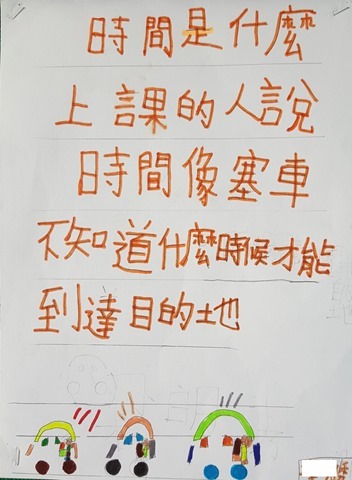 時間是什麼
上課的人說
時間像塞車
不知道什麼時候才能
到達目的地